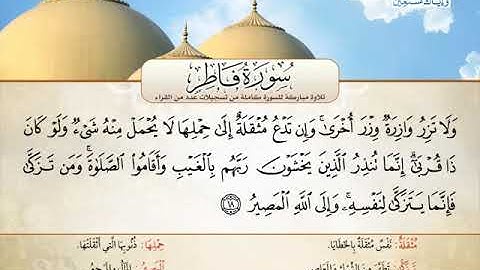 وإياك نستعين
سُورَةُ فَاطِرٍ
تلاوة مباركة للسورة كاملة من تسجيلات عدد من القراء
وَلَا تَزِرُ وَازِرَةٌ وِزْرَ أُخْرَىٰ ۚ وَإِن تَدْعُ مُثْقَلَةٌ إِلَىٰ حِمْلِهَا لَا يُحْمَلْ مِنْهُ شَيْءٌ وَلَوْ كَانَ
ذَا قُرْبَىٰ ۗ إِنَّمَا تُنذِرُ الَّذِينَ يَخْشَوْنَ رَبَّهُم بِالْغَيْبِ وَأَقَامُوا الصَّلَاةَ ۚ وَمَن تَزَكَّىٰ
فَإِنَّمَا يَتَزَكَّىٰ لِنَفْسِهِ ۚ وَإِلَى اللَّهِ الْمَصِيرُ ١٨
مُثْقَلَةٌ: نَفْسٌ مُثْقَلَةٌ بِالخَطَايَا. حِمْلِهَا: ذُنُوبِهَا الَّتِي أَثْقَلَتْهَا.